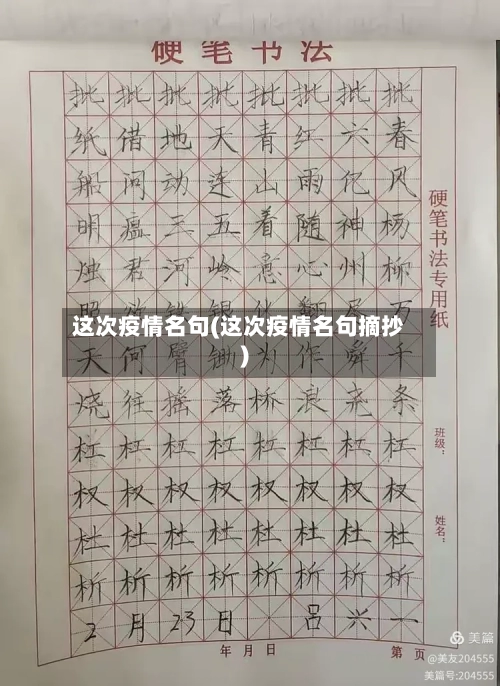 硬笔书法
批批批批批批批批
纸借地天青红六春
船问动连山雨亿风
明瘟三五着随神杨
烛君河岭意心州柳
这次疫情名句(这次疫情名句摘抄
)
天何臂锄为作舜千
烧往摇落桥浪尧条
杠杠杠杠杠杠杠杠
权权权权权权权权
杜杜杜杜杜杜杜杜
析析析析析析析析
2月23日 吕兴一
年 月 日
第 页
硬笔书法专用纸
班级：
姓名：
美篇
@美友204555
美篇号:204555